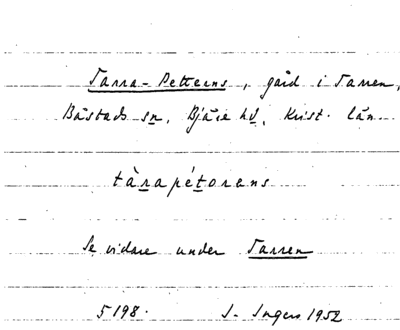 Tarra-Petterns, gård i Tarren,
Båstads sn, Bjäre hd, Krist. län
tàrapétorens
Se vidare under Tarren
5198. I. Ingers 1952